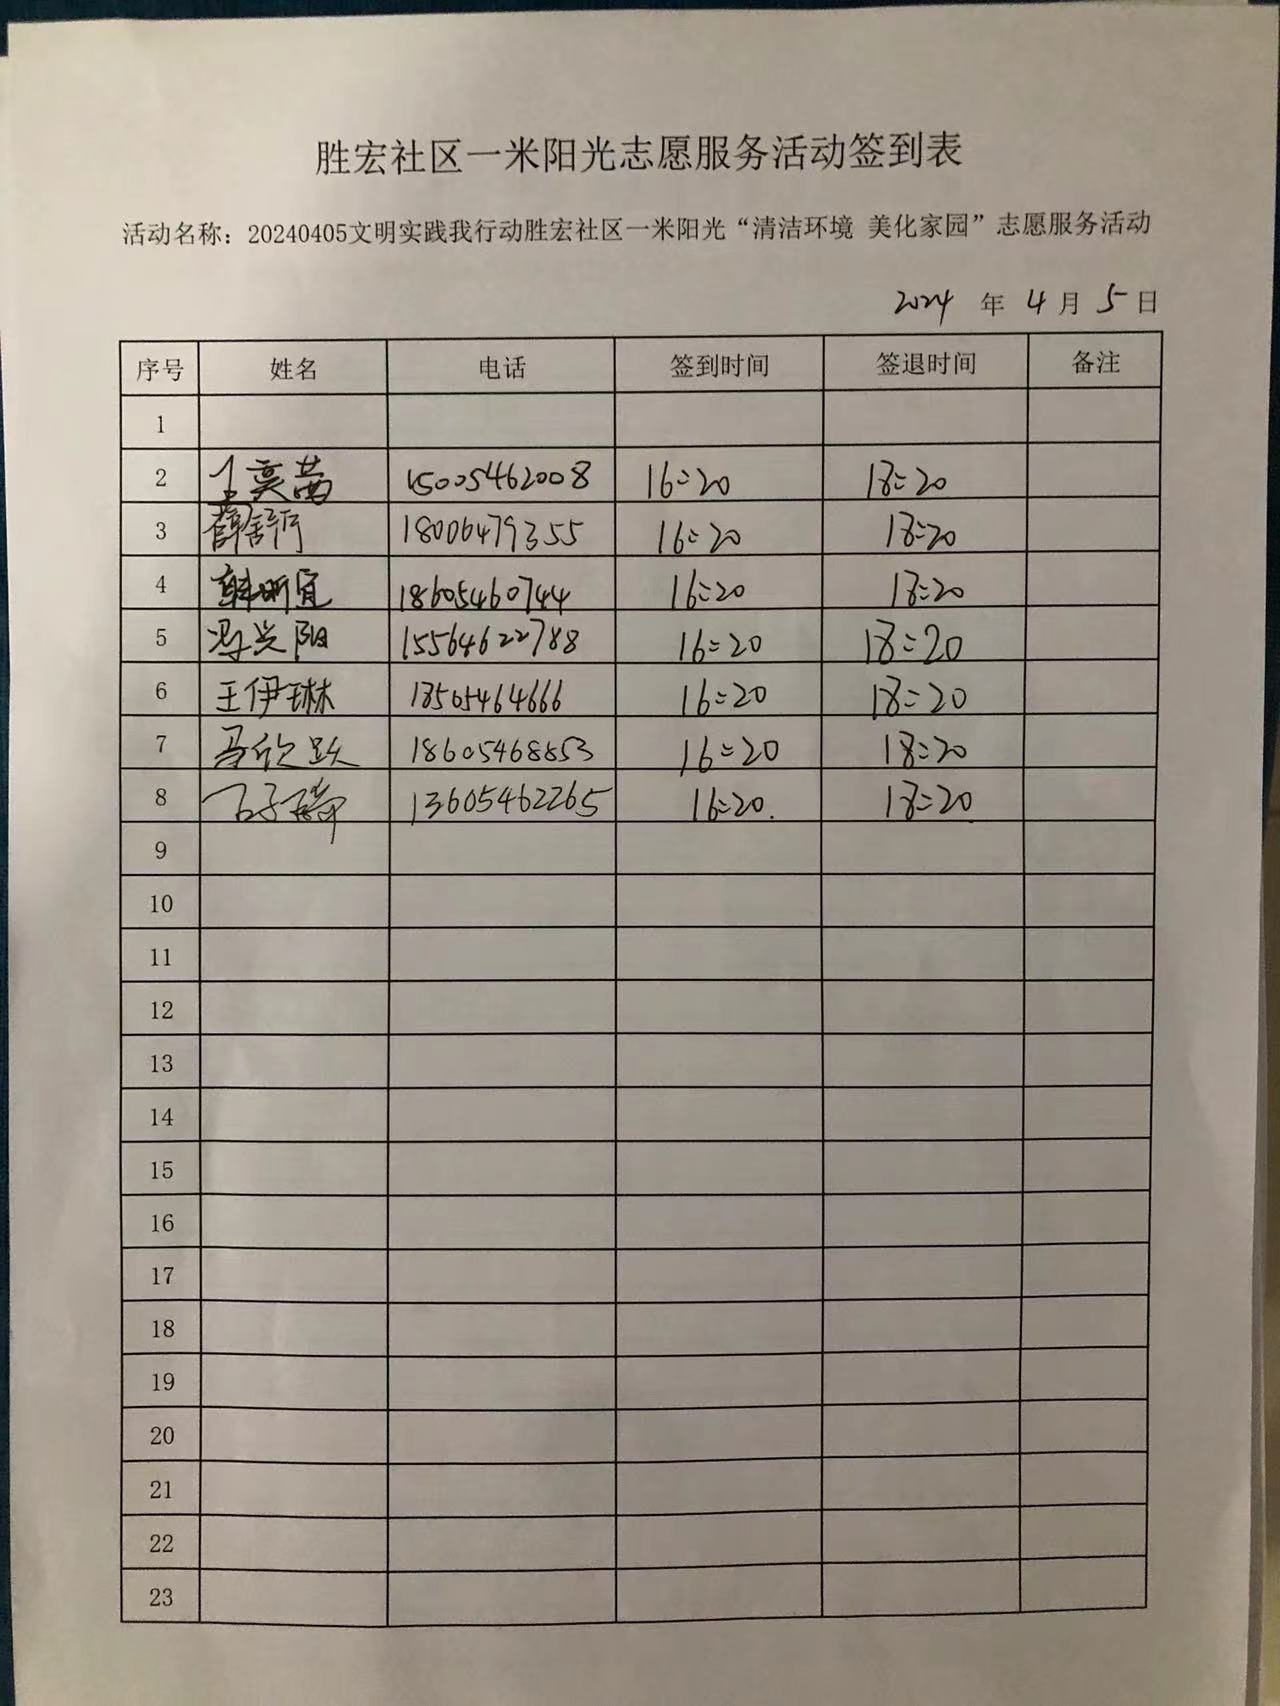 胜宏社区一米阳光志愿服务活动签到表
活动名称：20240405文明实践我行动胜宏社区一米阳光“清洁环境 美化家园”志愿服务活动
2024 年 4 月 5 日
序号 姓名 电话 签到时间 签退时间 备注
1
2 15005462008 16:20 18:20
3 薛舒 18006479355 16:20 18:20
4 韩昕宜 18605460744 16:20 18:20
5 冯兴阳 15564622788 16:20 18:20
6 王伊琳 18505464666 16:20 18:20
7 马欣跃 18605468853 16:20 18:20
8 石子琦 13605462265 16:20. 18:20
9
10
11
12
13
14
15
16
17
18
19
20
21
22
23